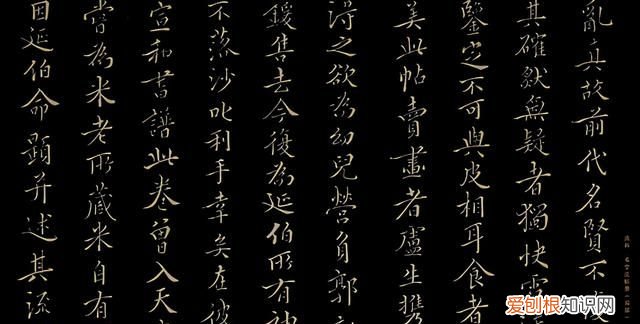 亂真故前代名賢不
其確然無疑者獨快雪
鑒定不可與皮相耳食者
美此帖賣畫者盧生携
得之欲為幼兒營負郭
鍰售去今復為延伯所有神
不落沙叱利手幸矣在彼
宣和書譜此卷曾入天
嘗為米老所藏米自有
因延伯命題并述其流
爱刨根知识网